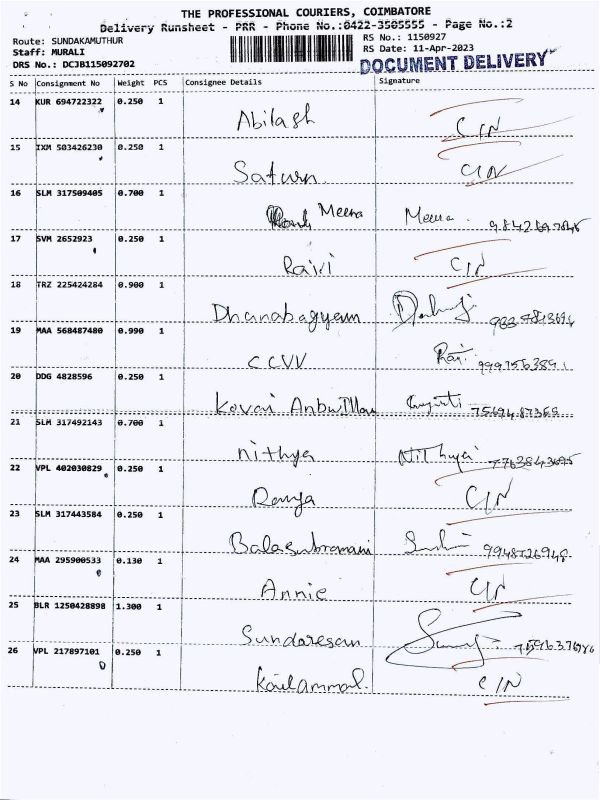 THE PROFESSIONAL COURIERS, COIMBATORE
Delivery Runsheet - PRR - Phone No.:0422-3505555 - Page No.:2
Route: SUNDAKAMUTHUR
Staff: MURALI
DRS No.: DCJB115092702
RS No.: 1150927
RS Date: 11-Apr-2023
DOCUMENT DELIVERY
S No Consignment No Weight PCS Consignee Details Signature
14 KUR 694722322 0.250 1 Abilash C/N
15 IXM 503426230 0.250 1 Saturn C/N
16 SLM 317509405 0.700 1 Meera Meera.
17 SVM 2652923 0.250 1 Ravi C/N
18 TRZ 225424284 0.900 1 Dhanabagyam
19 MAA 568487480 0.990 1 CCVV
20 DDG 4828596 0.250 1 Kovai Anbu Illam 7569487369
21 SLM 317492143 0.700 1 nithya Nithya
22 VPL 402030829 0.250 1 Ramya C/N
23 SLM 317443584 0.250 1 Balasubramani 9948726948
24 MAA 295900533 0.130 1 Annie C/N
25 BLR 1250428898 1.300 1 Sundaresan
26 VPL 217897101 0.250 1 Kailammal. C/N